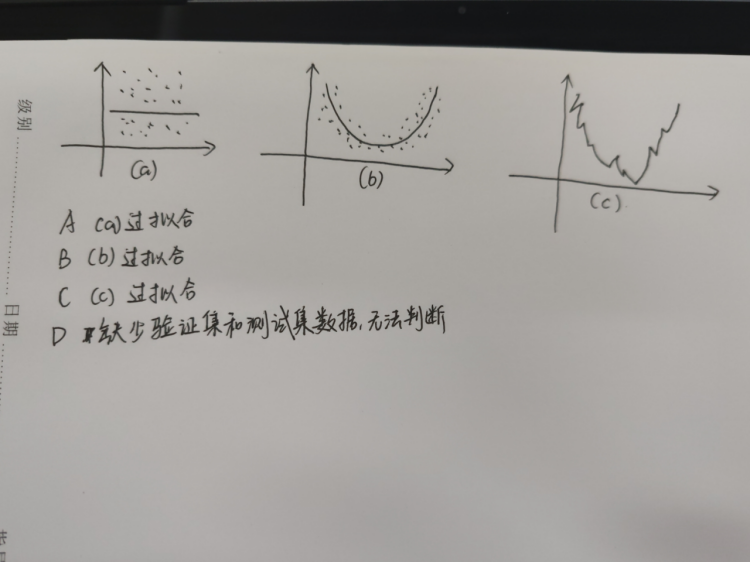 (a)
(b)
(c)
A (a)过拟合
B (b)过拟合
C (c)过拟合
D 缺少验证集和测试集数据,无法判断
级别
日期